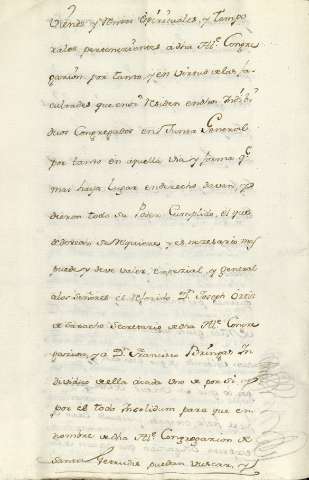 vienes y rentas espirituales, y tempo
rales pertenecientes a dha Ille. Congre
gacion, por tanto, y en virtud de las fa
cultades que en sí residen en dhos Indibi
duos Congregados en Junta General
por tanto en aquella via y forma q.e
mas haya lugar en derecho davan, y
dieron todo su Poder Cumplido, el que
de derecho se requiere y es nesesario mas
puede, y deve valer, especial, y general
a los Señores el referido D.n Joseph Ortis
de Secretario de dha Ille. Congre
gacion, y a D.n Francisco Bringas In
dividuo de ella a cada uno de por si, y
por el todo Insolidum para que en
nombre de dha Ille. Congregacion de
Santa Getrudis puedan buscar, y